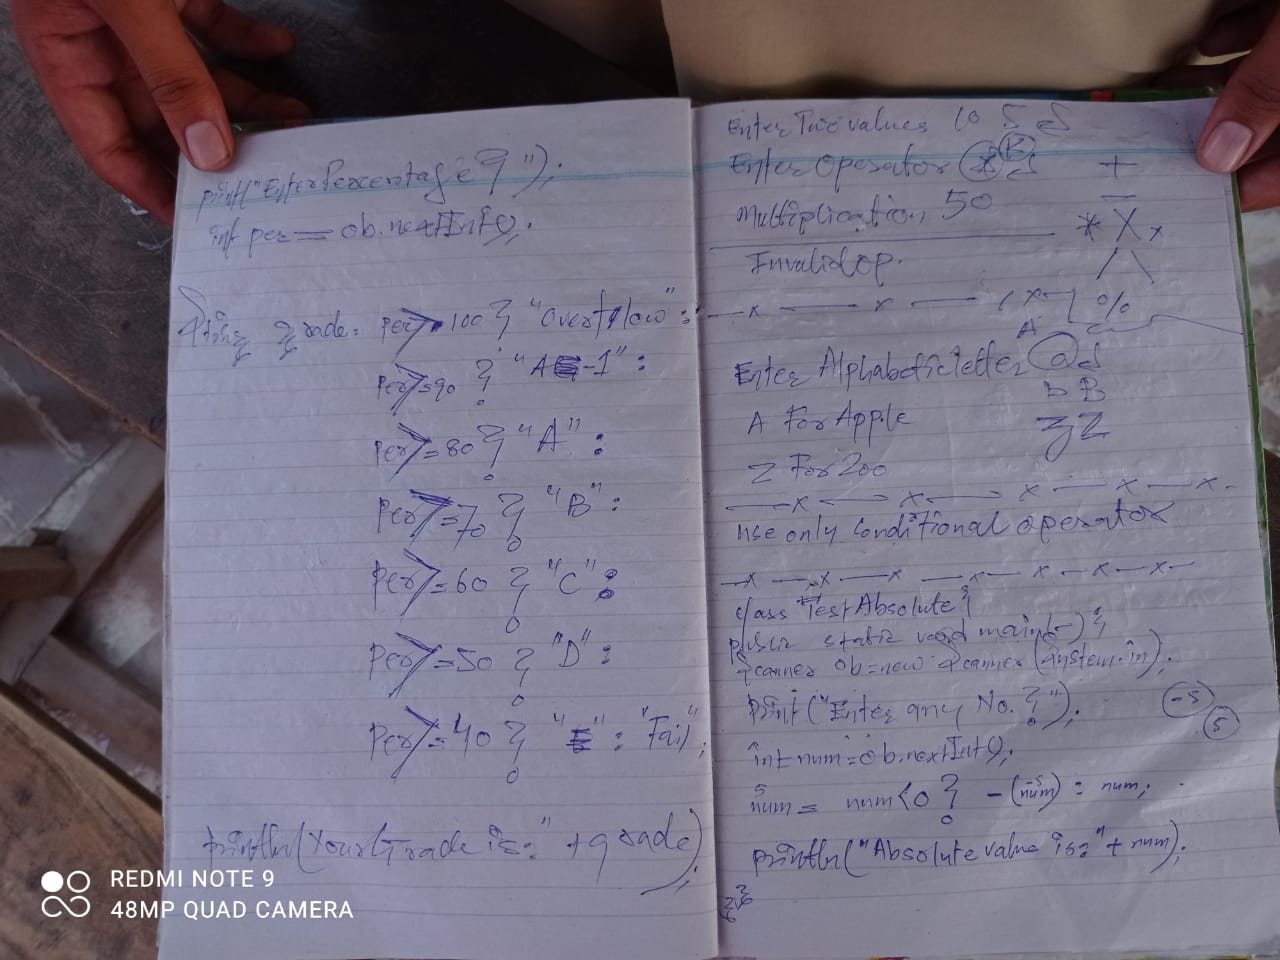 print("Enter Percentage?");
int per = ob.nextInt();
String grade = per>100 ? "Overflow" :
per>=90 ? "A-1" :
per>=80 ? "A" :
per>=70 ? "B" :
per>=60 ? "C" :
per>=50 ? "D" :
per>=40 ? "E" : "Fail";
println(Your Grade is:" + grade);
Enter Two values 10 5
Enter Operator *
+
Multiplication, 50
-
* X x
Invalid op.
/
%
A
Enter Alphabetic letter a
b B
A For Apple
z Z
Z For Zoo
use only conditional operator
class TestAbsolute{
public static void main(-){
Scanner ob=new Scanner(System.in);
print("Enter any No.?");
-5
5
int num=ob.nextInt();
5 -5
num = num<0 ? -(num) : num;
println("Absolute value is:"+num);
}}
REDMI NOTE 9
48MP QUAD CAMERA